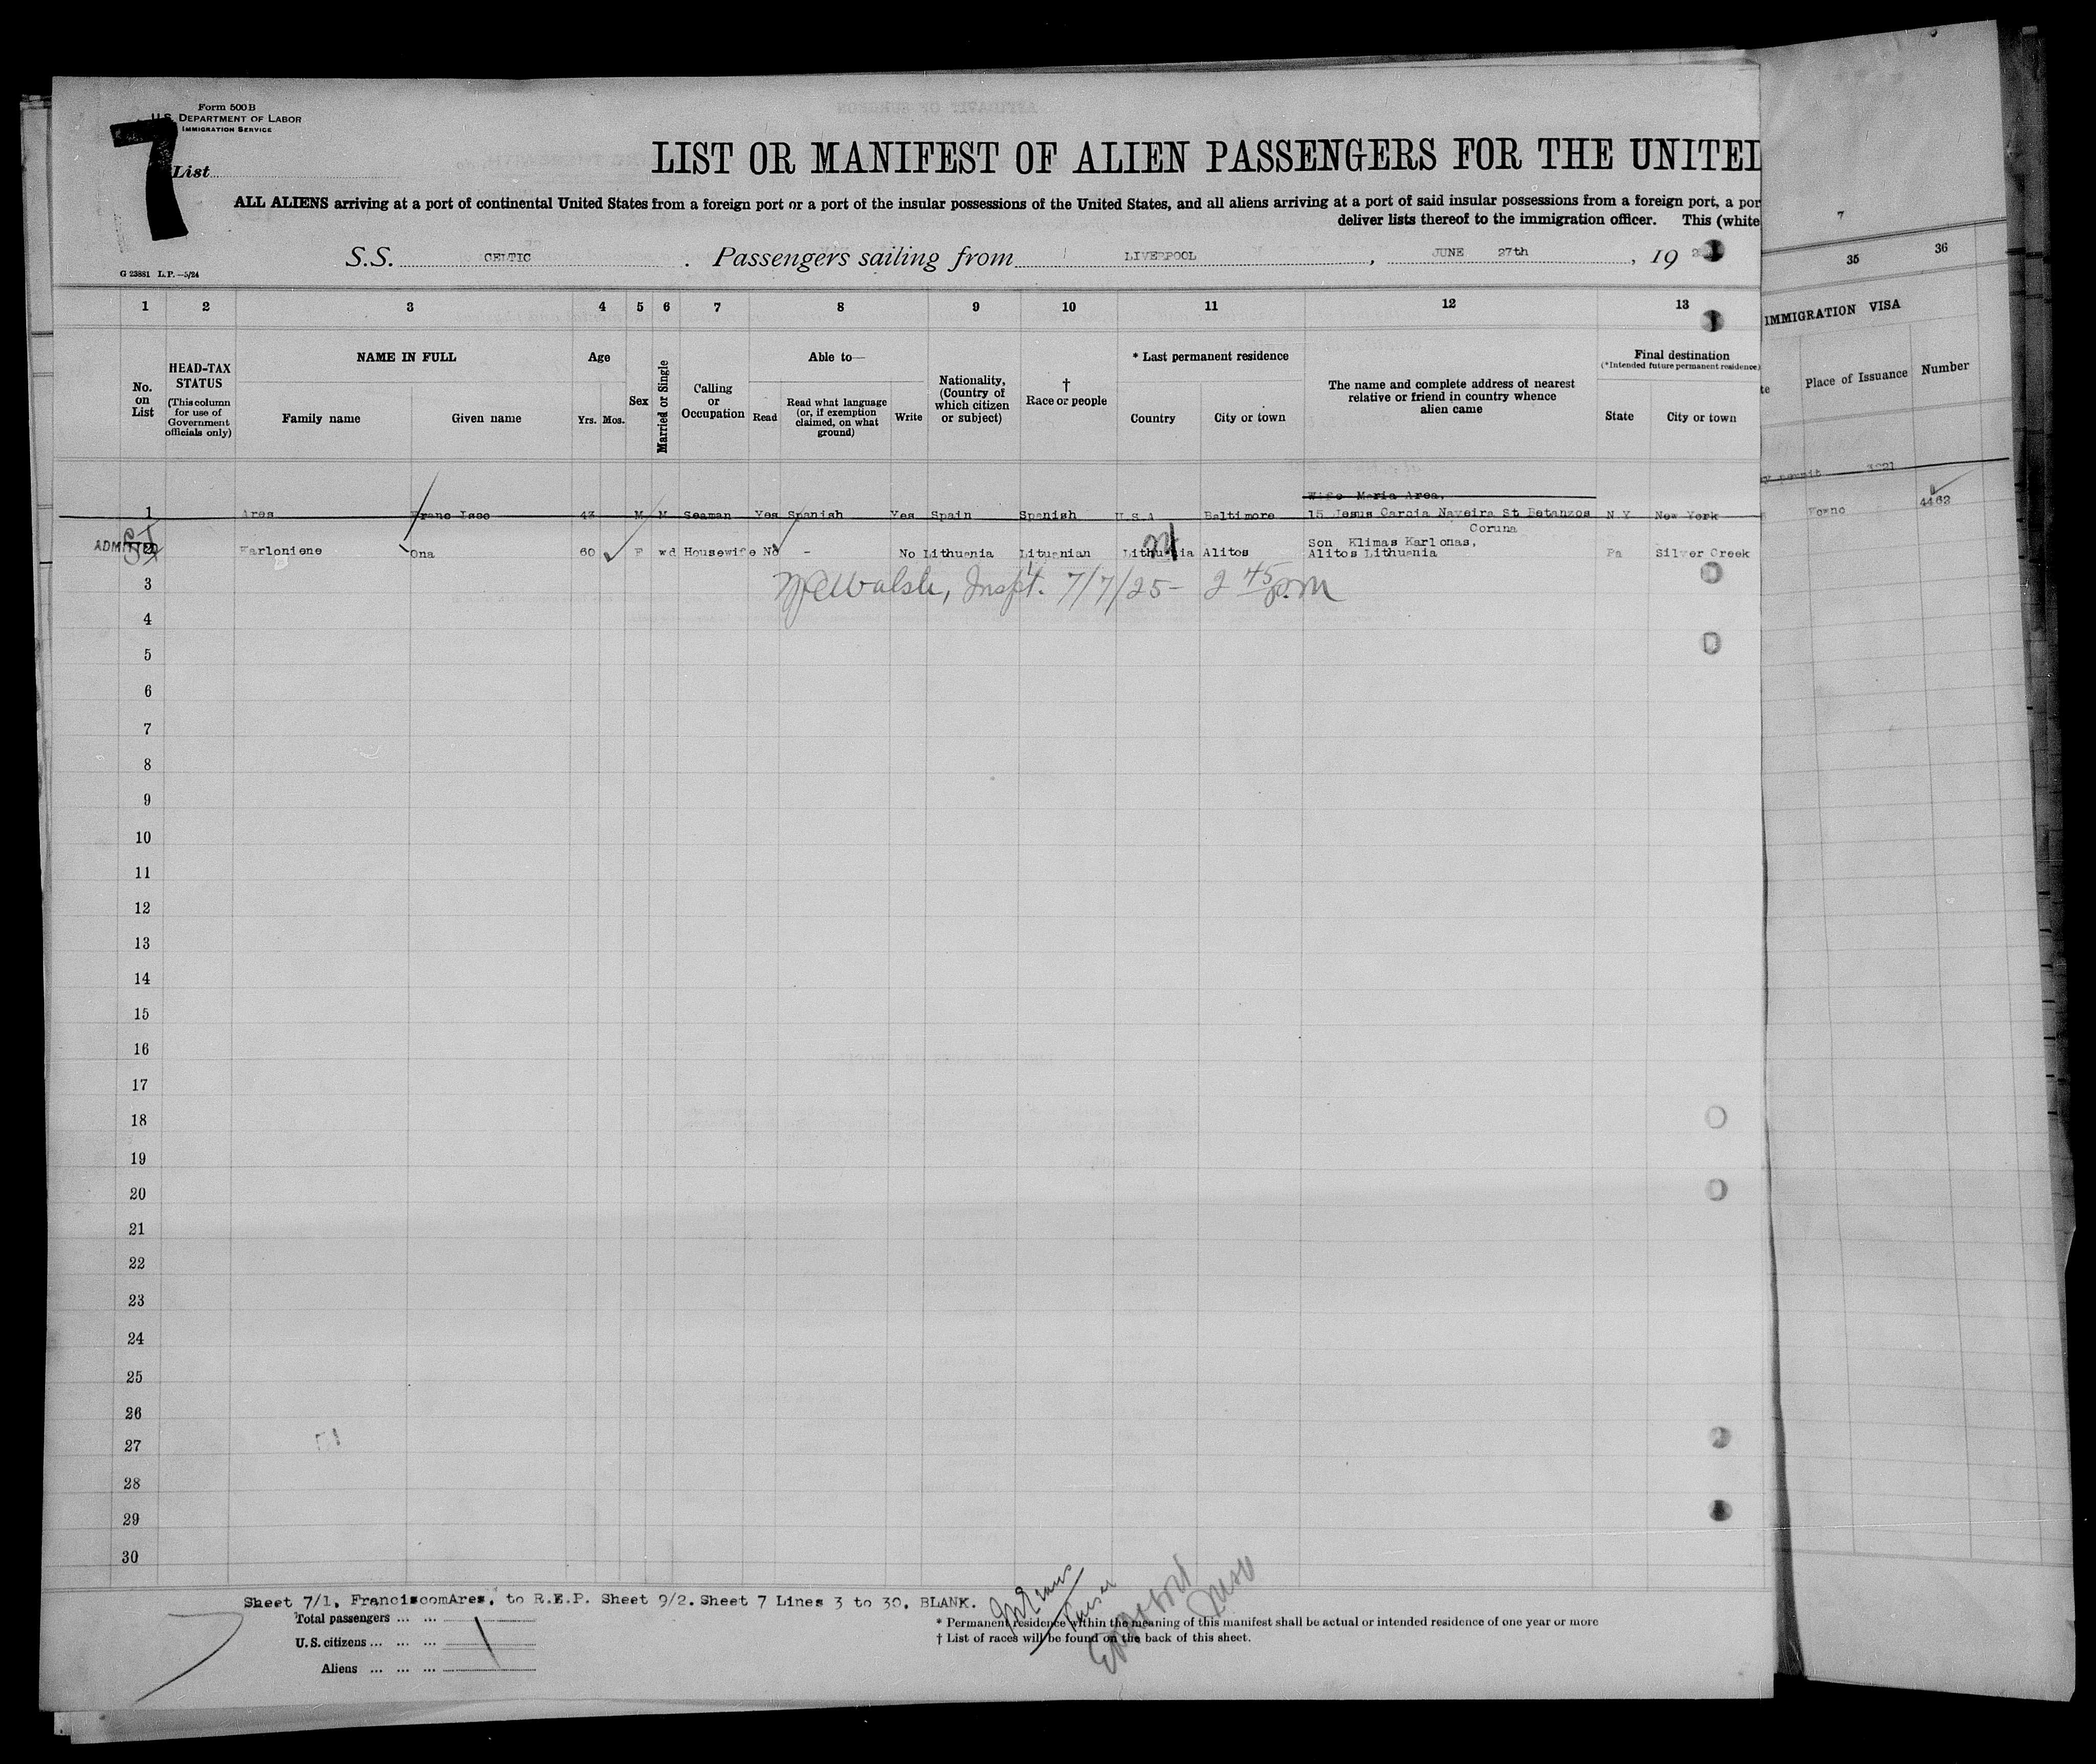 Form 500B
U.S. DEPARTMENT OF LABOR
IMMIGRATION SERVICE
7
List
LIST OR MANIFEST OF ALIEN PASSENGERS FOR THE UNITED
ALL ALIENS arriving at a port of continental United States from a foreign port or a port of the insular possessions of the United States, and all aliens arriving at a port of said insular possessions from a foreign port, a por
deliver lists thereof to the immigration officer. This (white
S.S. CELTIC . Passengers sailing from LIVERPOOL , JUNE 27th , 19
G 23881 L.P.—5/24
7
1 2 3 4 5 6 7 8 9 10 11 12 13 35 36
IMMIGRATION VISA
No. on List
HEAD-TAX STATUS
(This column for use of Government officials only)
NAME IN FULL
Family name Given name
Age
Yrs. Mos.
Sex
Married or Single
Calling or Occupation
Able to—
Read
Read what language (or, if exemption claimed, on what ground)
Write
Nationality, (Country of which citizen or subject)
† Race or people
* Last permanent residence
Country City or town
The name and complete address of nearest relative or friend in country whence alien came
Final destination
(*Intended future permanent residence)
State City or town
te Place of Issuance Number
Wife Maria Area,
1 Ares Franc Isco 43 M M Seaman Yes Spanish Yes Spain Spanish U.S.A Baltimore 15 Jesus Garcia Naveira St Betanzos N.Y New York
Coruna
permit 3821
ADMITTED
SI
2 Karloniene Ona 60 F wd Housewife No - No Lithuania Lituanian Lithuania Alitos Son Klimas Karlonas,
Alitos Lithuania Pa Silver Creek
Kowno 4463
3 Walsh, Inspt. 7/7/25 - 2 45 p.m
4
5
6
7
8
9
10
11
12
13
14
15
16
17
18
19
20
21
22
23
24
25
26
27
28
29
30
Sheet 7/1, FranciscomAres, to R.E.P. Sheet 9/2. Sheet 7 Lines 3 to 30, BLANK.
Total passengers ... ...
U.S. citizens ... ... ...
Aliens ... ... ...
* Permanent residence within the meaning of this manifest shall be actual or intended residence of one year or more
† List of races will be found on the back of this sheet.